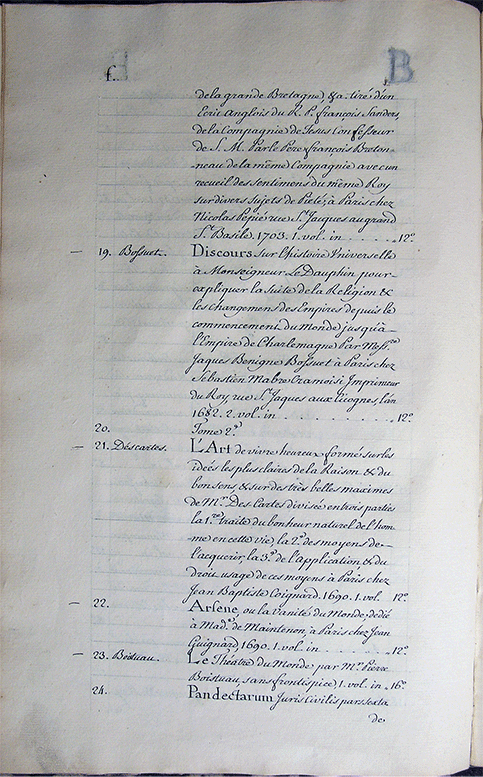 f. B
de la grande Bretagne, &a. tiré d'un
Ecrit Anglois du R. P. françois Sanders,
de la Compagnie de Jesus Confesseur
de S. M. Par le Pere françois Breton-
-neau de la même Compagnie avec un
recueil des sentimens du même Roy
sur divers sujets de Pieté, à Paris chez
Nicolas Pepié rue St. Jaques au grand
St. Basile. 1703. 1. vol. in . . . . . 12°
19. Bossuet. Discours sur l'histoire Universelle
à Monseigneur Le Dauphin pour
expliquer la Suite de la Religion &
les changemens des Empires depuis le
commencement du Monde jusqu'à
l'Empire de Charlemagne Par Messre.
Jaques Benigne Bossuet à Paris chez
Sébastien Mabre Cramoisi Imprimeur
du Roy, rue St. Jaques aux Cicognes, l'an
1682. 2. vol. in . . . . . . . . . 12°
20. Tome 2d.
21. Déscartes. L'Art de vivre heureux formé sur les
ideés les plus claires de la Raison & du
bon sens & sur des très belles maximes
de Mr. Des Cartes divisée en trois parties
la 1re. traite du bonheur naturel de l'hom-
me en cette vie, la 2e. des moyens de
l'acquerir, la 3e. de l'application & du
droit usage de ces moyens à Paris chez
Jean Baptiste Coignard. 1690. 1. vol. 12°
22. Arsene, ou la vanité du Monde, dedié
à Made. de Maintenon, à Paris chez Jean
Guignard 1690. 1. vol. in . . . . . 12°
23. Boistuau. Le Théatre du Monde par Mr. Pierre
Boistuau, sans frontispiece) 1. vol. in . 16°
24. Pandectarum Juris Civilis pars sexta
de